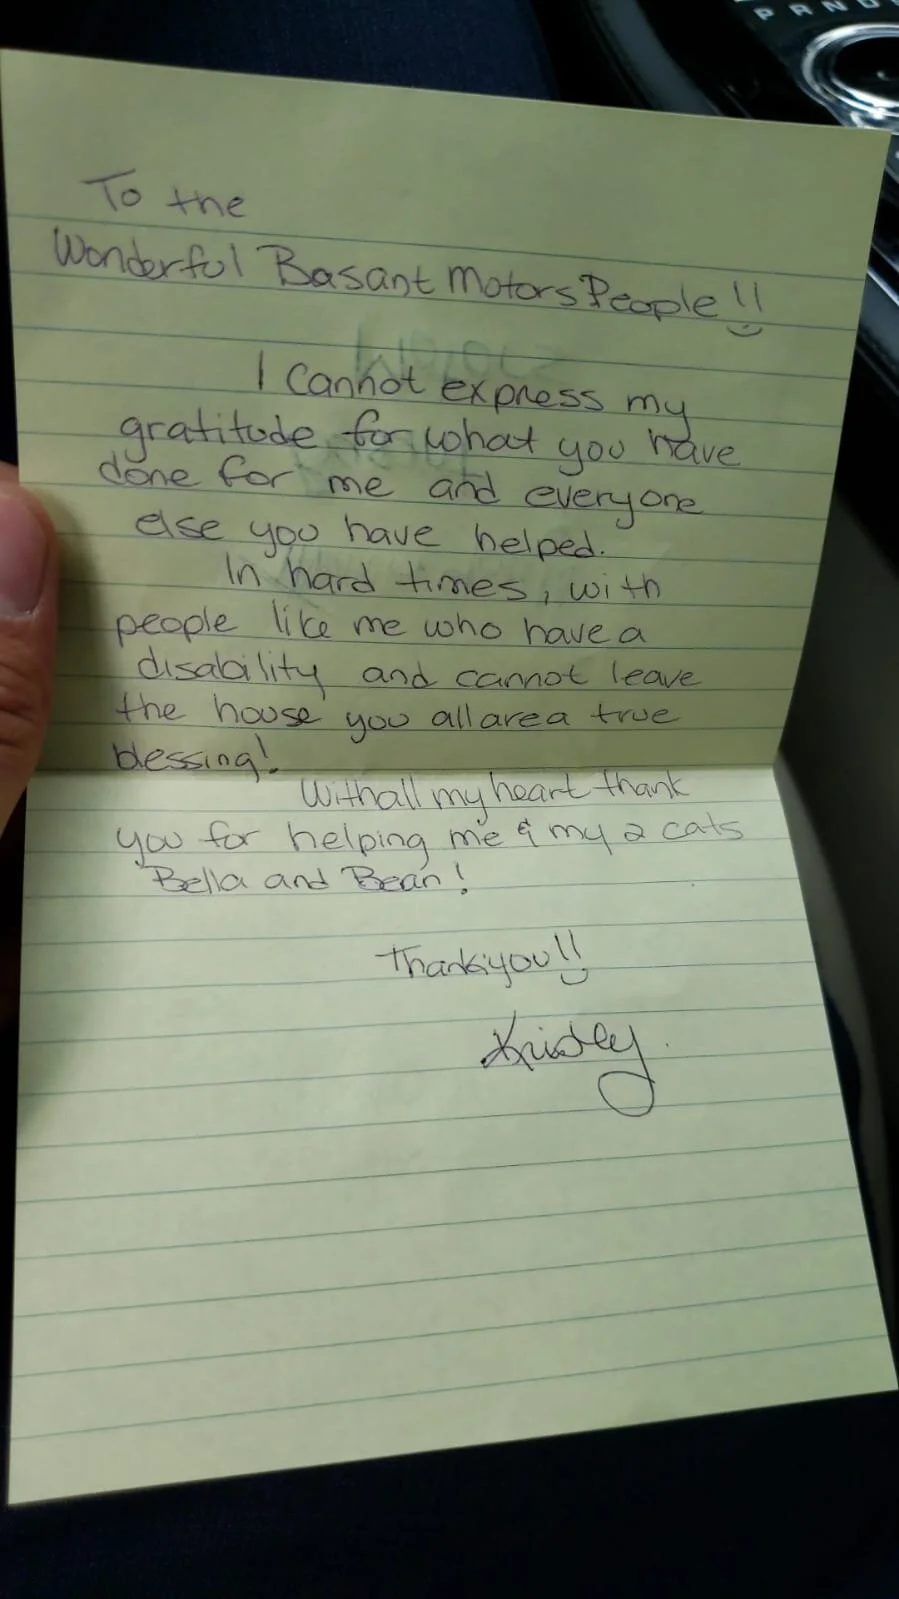 P R N D
To the
Wonderful Basant Motors People!!
I cannot express my
gratitude for what you have
done for me and everyone
else you have helped.
In hard times, with
people like me who have a
disability and cannot leave
the house you all are a true
blessing!
With all my heart thank
you for helping me & my 2 cats
Bella and Bean!
Thank you!!